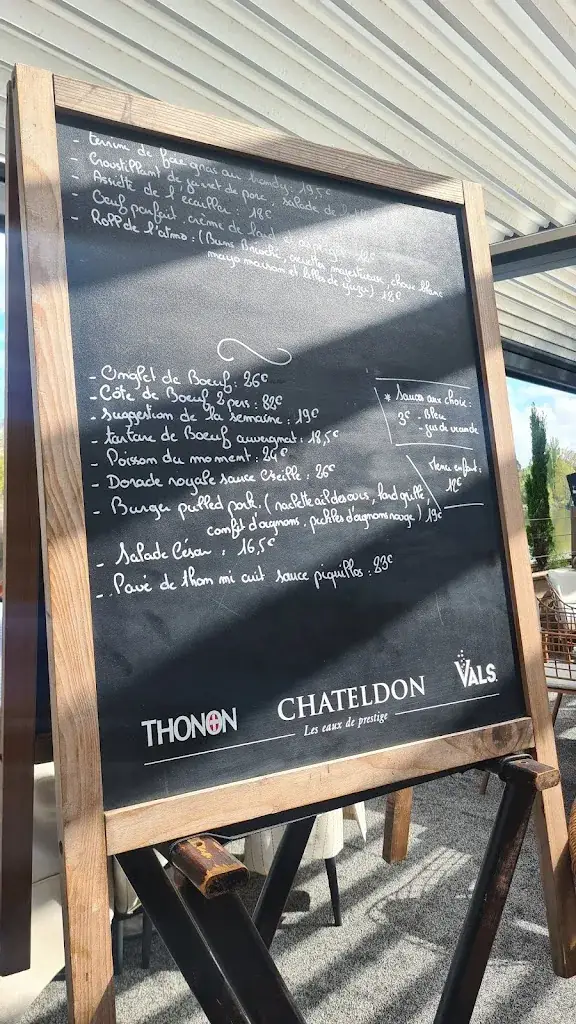 - Terrine de foie gras au handy : 19,5€
- Croustillant de jarret de porc, salade de
- Assiette de l'écailler : 18€
- Oeuf parfait, crème de lard et
- Roll de l'atmo : (Buns Brioché, crevettes majestueuse, choux blanc
mayo maison et billes de yuzu) 18€
- Onglet de Boeuf : 26€
- Côte de Boeuf 2 pers : 82€
- Suggestion de la semaine : 19€
- tartare de Boeuf auvergnat : 18,5€
- Poisson du moment : 24€
- Dorade royale sauce Oseille : 26€
- Burger pulled pork. (raclette ail des ours, lard grillé,
comfit d'oignons, pickles d'oignons rouge) 19€
- Salade César : 16,5€
- Pavé de thon mi cuit sauce piquillos : 23€
* Sauces aux choix :
3€ - Bleu
- jus de viande
Menu enfant :
12€
THONON
CHATELDON
Les eaux de prestige
VALS